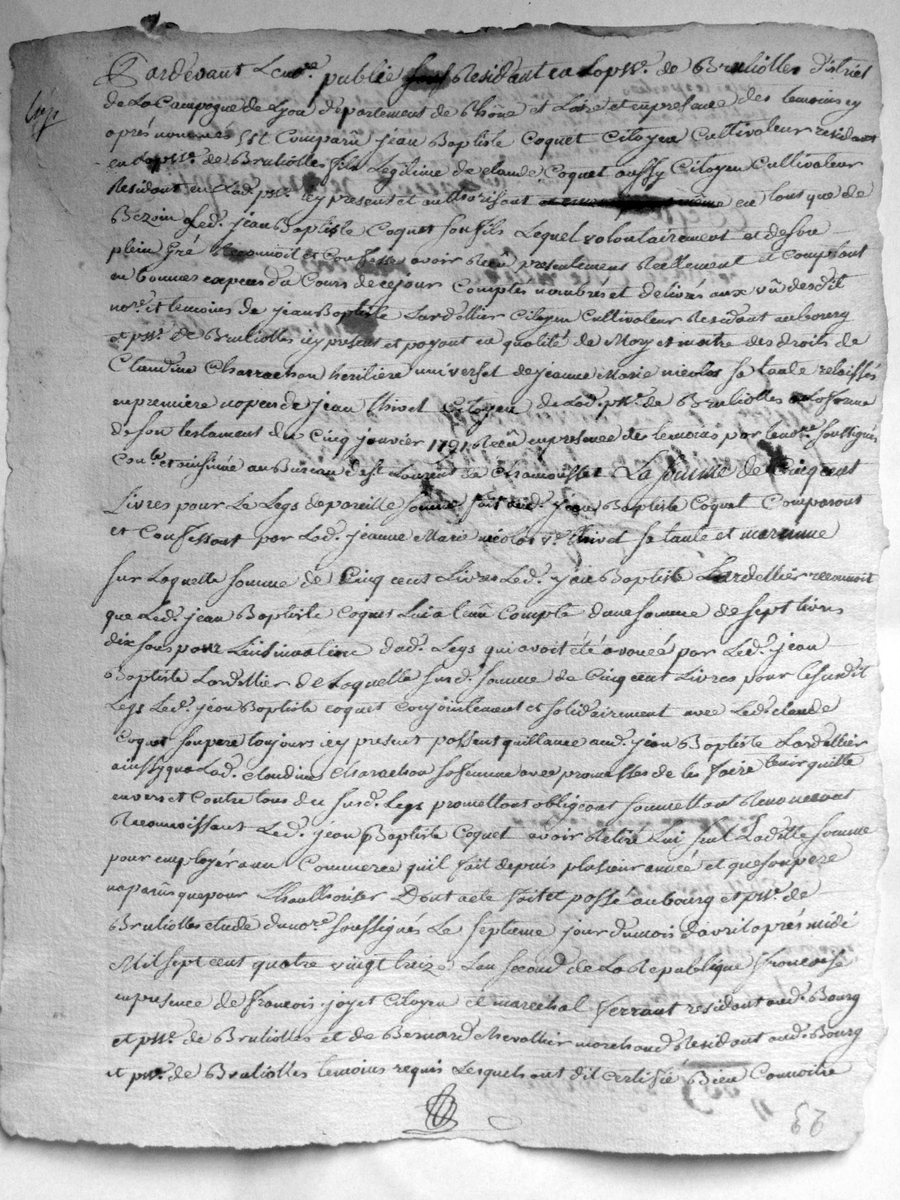 Pardevant Le no.re publie Residant en la psse. de Brulliolles district
de La Campagne de Lyon departement de Rhône et Loire et en presence des temoins cy
aprés nommés Est Comparû jean Baptiste Coquet Citoyen Cultivateur residant
en la psse. de Brulliolles fils Legitime de claude Coquet aussy Citoyen Cultivateur
Residant en Lad. psse. icy present et authorisant en tout que de
Bezoin Led. jean Baptiste Coquet son fils Lequel volontairement et de son
plein Gré Reconnoit et Confesse avoir Reçû presentement Reellement et Comptant
en bonnes especes du Cours de ce jour Comptés nombrés et delivrés aux vû desdit
no.re et temoins de jean Baptiste Lardellier Citoyen Cultivateur Residant au bourg
et psse. de Brulliolles icy present et payant en qualité de Mary et maitre des droits de
Claudine Charrachon heritiere universel de jeanne Marie nicolas sa tante relaissée
en premiere nopces de jean thivet Citoyen de Lad. psse. de Brulliolles a La forme
de son testament du Cinq janvier 1791 Reçû en presence de temoins par le no.re soussigné
Con.lé et insinüé au Bureau de st Laurent de Chamousset La somme de Cinq cent
Livres pour Le Legs de pareille somme fait aud. jean Baptiste Coquet Comparant
et Confessant par Lad. jeanne Marie nicolas v.e thivet sa tante et maraine
sur Laquelle somme de Cinq cent Livres Led. jean Baptiste Lardellier reconnoit
que Led. jean Baptiste Coquet Lui a tenû Compte d'une somme de sept livres
dix sous pour L'insinuation dud. Legs qui avoit été avancé par Led. jean
Baptiste Lardellier de Laquelle susd. somme de Cinq cent Livres pour Le susdit
Legs Led. jean Baptiste Coquet Conjointement et solidairement avec Led. claude
Coquet son pere toujours icy present passent quittance aud. jean Baptiste Lardellier
ainssy qua Lad. claudine Charachon sa femme avec promesses de les faire tenir quitte
envers et Contre tous du susd. Legs promettant obligeant soumettant Renonceant
Reconnoissant Led. jean Baptiste Coquet avoir Retiré Lui seul Laditte somme
pour employér a un Commerce qu'il fait depuis plusieur année et que son pere
na parû que pour L'hauthoriser Dont acte fait et passé au bourg et psse. de
Brulliolles etude du no.re soussigné Le septieme jour du mois d'avril aprés midi
Mil sept cent quatre vingt treize L'an second de La Republique françoise
en presence de françois joyet Citoyen et marechal ferrant residant aud. Bourg
et psse. de Brulliolles et de Bernard Chevallier marchand Residant aud. Bourg
et psse. de Brulliolles temoins requis Lesquels ont dit certifié Bien Connoitre
23